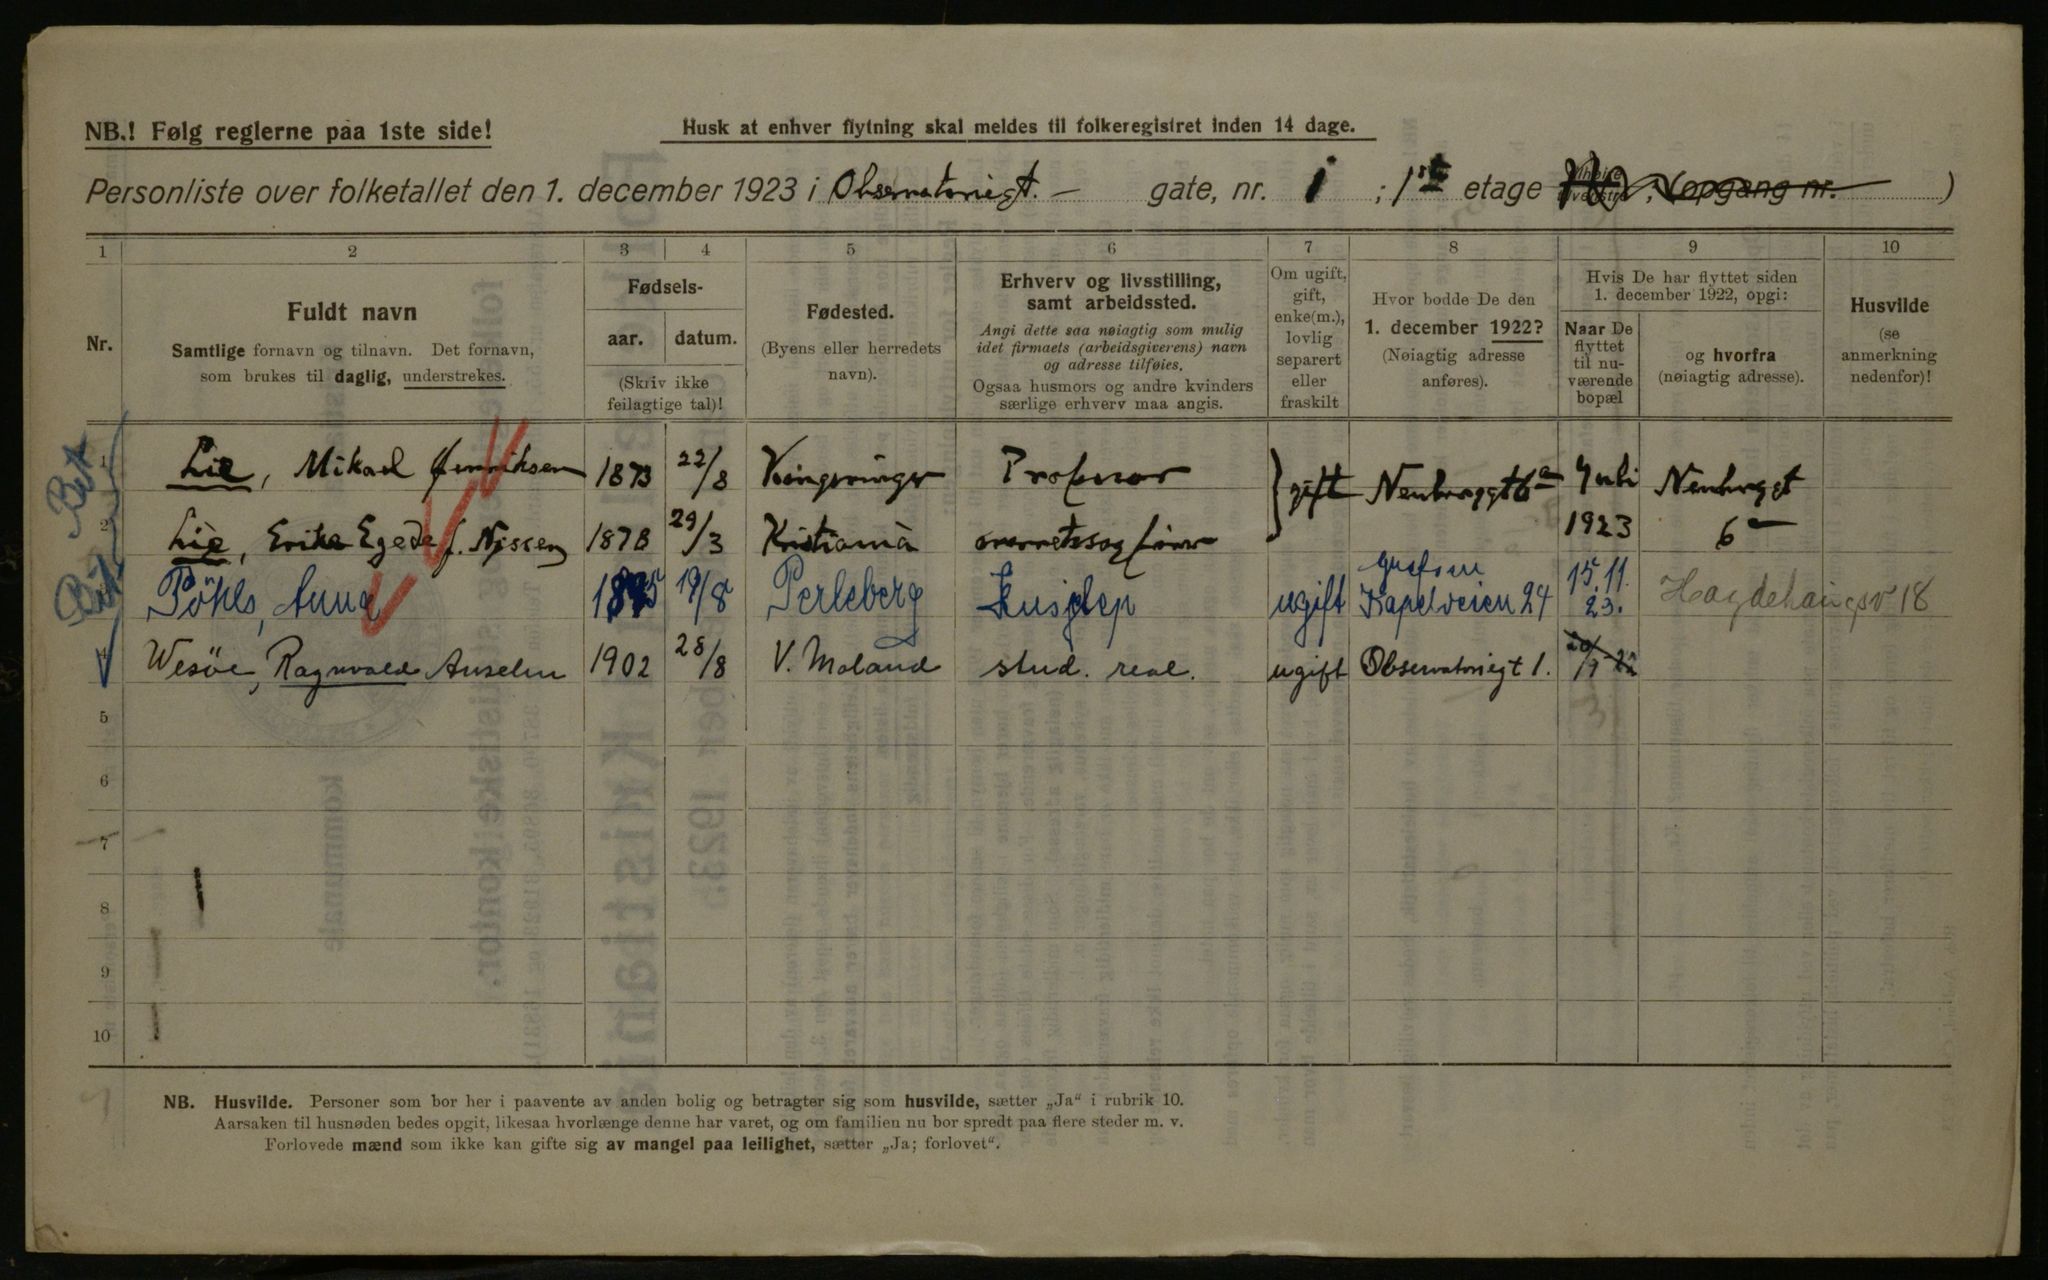 NB.! Følg reglerne paa 1ste side!
Husk at enhver flytning skal meldes til folkeregistret inden 14 dage.
Personliste over folketallet den 1. december 1923 i Observatoriegt. – gate, nr. 1 ; 1ste etage opgang nr. )
1 2 3 4 5 6 7 8 9 10
Nr.
Fuldt navn
Samtlige fornavn og tilnavn. Det fornavn,
som brukes til daglig, understrekes.
Fødsels-
aar. datum.
(Skriv ikke
feilagtige tal)!
Fødested.
(Byens eller herredets
navn).
Erhverv og livsstilling,
samt arbeidssted.
Angi dette saa nøiagtig som mulig
idet firmaets (arbeidsgiverens) navn
og adresse tilføies.
Ogsaa husmors og andre kvinders
særlige erhverv maa angis.
Om ugift,
gift,
enke(m.),
lovlig
separert
eller
fraskilt
Hvor bodde De den
1. december 1922?
(Nøiagtig adresse
anføres).
Hvis De har flyttet siden
1. december 1922, opgi:
Naar De
flyttet
til nu-
værende
bopæl
og hvorfra
(nøiagtig adresse).
Husvilde
(se
anmerkning
nedenfor)!
1 Lie, Mikael Henriksen 1873 22/8 Kongsvinger Professor gift Neuberggt 6a Juli Neubergt
2 Lie, Erika Egede f. Nissen 1878 29/3 Kristiania 1923 6a
Pöhls, Anna 19/8 Perleberg Husjelp ugift Kapelveien 24 15.11. 23. Hagdehaugsv 18
4 Wesöe, Ragnvald Anselm 1902 28/8 V. Moland stud. real. ugift Observatoriegt 1.
5
6
7
8
9
10
NB. Husvilde. Personer som bor her i paavente av anden bolig og betragter sig som husvilde, sætter „Ja“ i rubrik 10.
Aarsaken til husnøden bedes opgit, likesaa hvorlænge denne har varet, og om familien nu bor spredt paa flere steder m. v.
Forlovede mænd som ikke kan gifte sig av mangel paa leilighet, sætter „Ja; forlovet“.